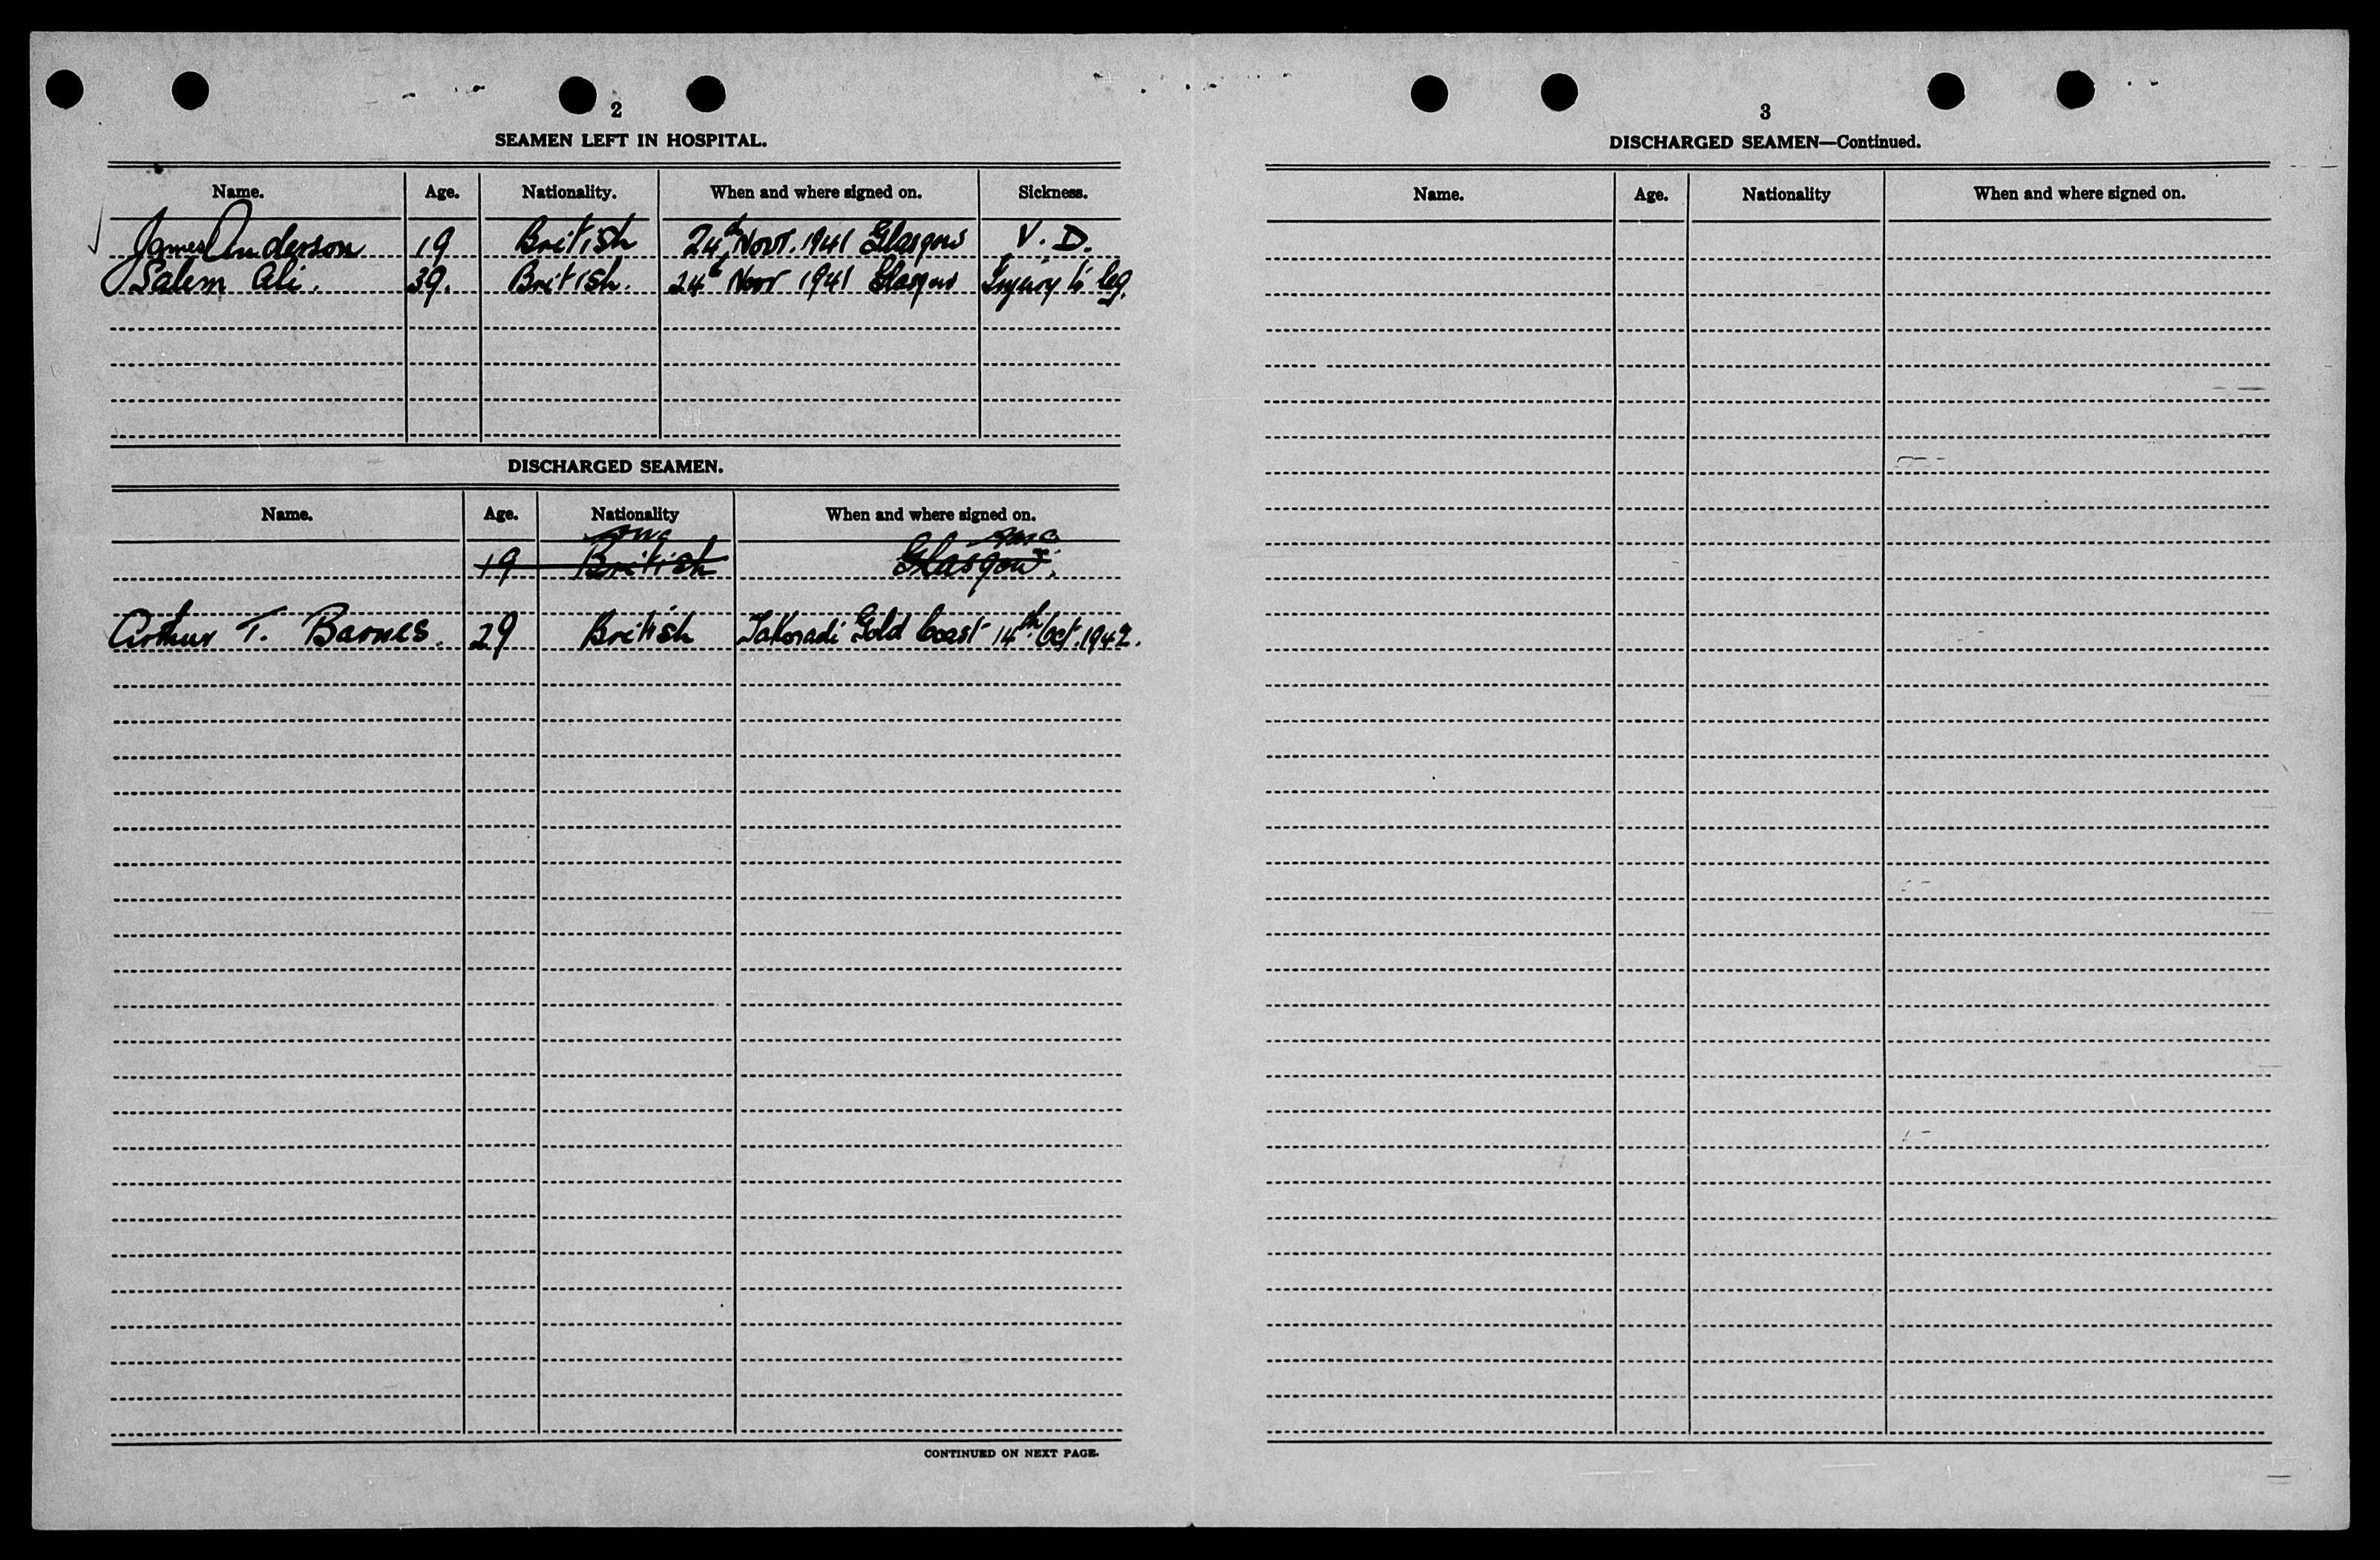 2
SEAMEN LEFT IN HOSPITAL.
Name. Age. Nationality. When and where signed on. Sickness.
James Anderson 19 British 24th Novr. 1941 Glasgow V. D.
Salem Ali. 39. British. 24th Novr 1941 Glasgow Injury to leg.
DISCHARGED SEAMEN.
Name. Age. Nationality When and where signed on.
19 British Glasgow.
Arthur T. Barnes. 29 British Takoradi Gold Coast 14th Oct. 1942.
CONTINUED ON NEXT PAGE.
3
DISCHARGED SEAMEN—Continued.
Name. Age. Nationality When and where signed on.